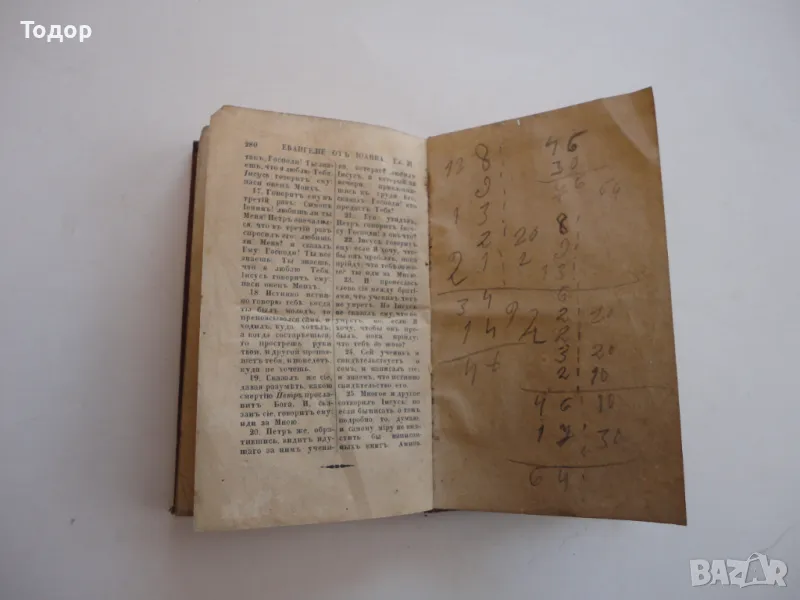 Тодор
280 ЕВАНГЕЛІЕ ОТЪ ІОАННА Гл. 21
такъ, Господи! Ты зна-
ешь, что я люблю Тебя.
Іисусъ говоритъ ему:
паси овецъ Моихъ.
17. Говоритъ ему въ
третій разъ: Симонъ
Іонинъ! любишь ли ты
Меня? Петръ опечалил-
ся, что въ третій разъ
спросилъ его: любишь
ли Меня? и сказалъ
Ему: Господи! Ты все
знаешь; Ты знаешь,
что я люблю Тебя.
Іисусъ говоритъ ему:
паси овецъ Моихъ.
18. Истинно исти-
но говорю тебѣ: когда
ты былъ молодъ, то
препоясывался самъ, и
ходилъ, куда хотѣлъ;
а когда состарѣешься,
то прострешь руки
твои, и другой препоя-
шетъ тебя, и поведетъ,
куда не хочешь.
19. Сказалъ же сіе,
давая разумѣть, какою
смертію Петръ просла-
витъ Бога. И, ска-
завъ сіе, говоритъ ему:
иди за Мною.
20. Петръ же, обра-
тившись, видитъ иду-
щаго за нимъ учени-
ка, котораго любилъ
Іисусъ, и который на
вечери, приклонив-
шись къ груди Его,
сказалъ: Господи! кто
предастъ Тебя?
21. Его увидѣвъ,
Петръ говоритъ Іису-
су: Господи! а онъ что?
22. Іисусъ говоритъ
ему: если Я хочу, что-
бы онъ пребылъ, пока
пріиду, что тебѣ до то-
го? ты иди за Мною.
23. И пронеслось
слово сіе между брать-
ями, что ученикъ тотъ
не умретъ. Но Іисусъ
не сказалъ ему, что не
умретъ, но: если Я
хочу, чтобы онъ пре-
былъ, пока пріиду,
что тебѣ до того?
24. Сей ученикъ и
свидѣтельствуетъ о
семъ, и написалъ сіе;
и знаемъ, что истинно
свидѣтельство его.
25. Многое и другое
сотворилъ Іисусъ: но
если бы писать о томъ
подробно, то, думаю,
и самому міру не вмѣ-
стить бы написан-
ныхъ книгъ. Аминь.
46
30
8
9
3
2 20
2 1 2
3 4
1 4
4 6
2 20
2
3 20
2 10
4 6 10
1 7 30
6 4
BAZAR